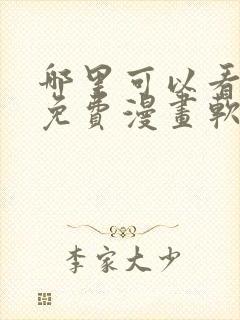 哪里可以看
免費漫畫軟
李家大少